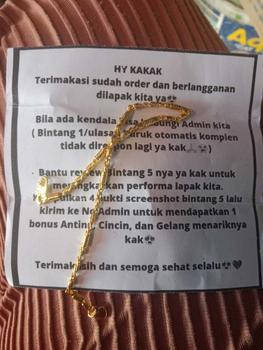 HY KAKAK
Terimakasi sudah order dan berlangganan
dilapak kita ya
Bila ada kendala bisa hubungi Admin kita
( Bintang 1/ulasan buruk otomatis komplen
tidak direspon lagi ya kak
- Bantu review bintang 5 nya ya kak untuk
meningkatkan performa lapak kita.
4 bukti screenshot bintang 5 lalu
kirim ke No Admin untuk mendapatkan 1
bonus Anting, Cincin, dan Gelang menariknya
kak
Terimakasih dan semoga sehat selalu